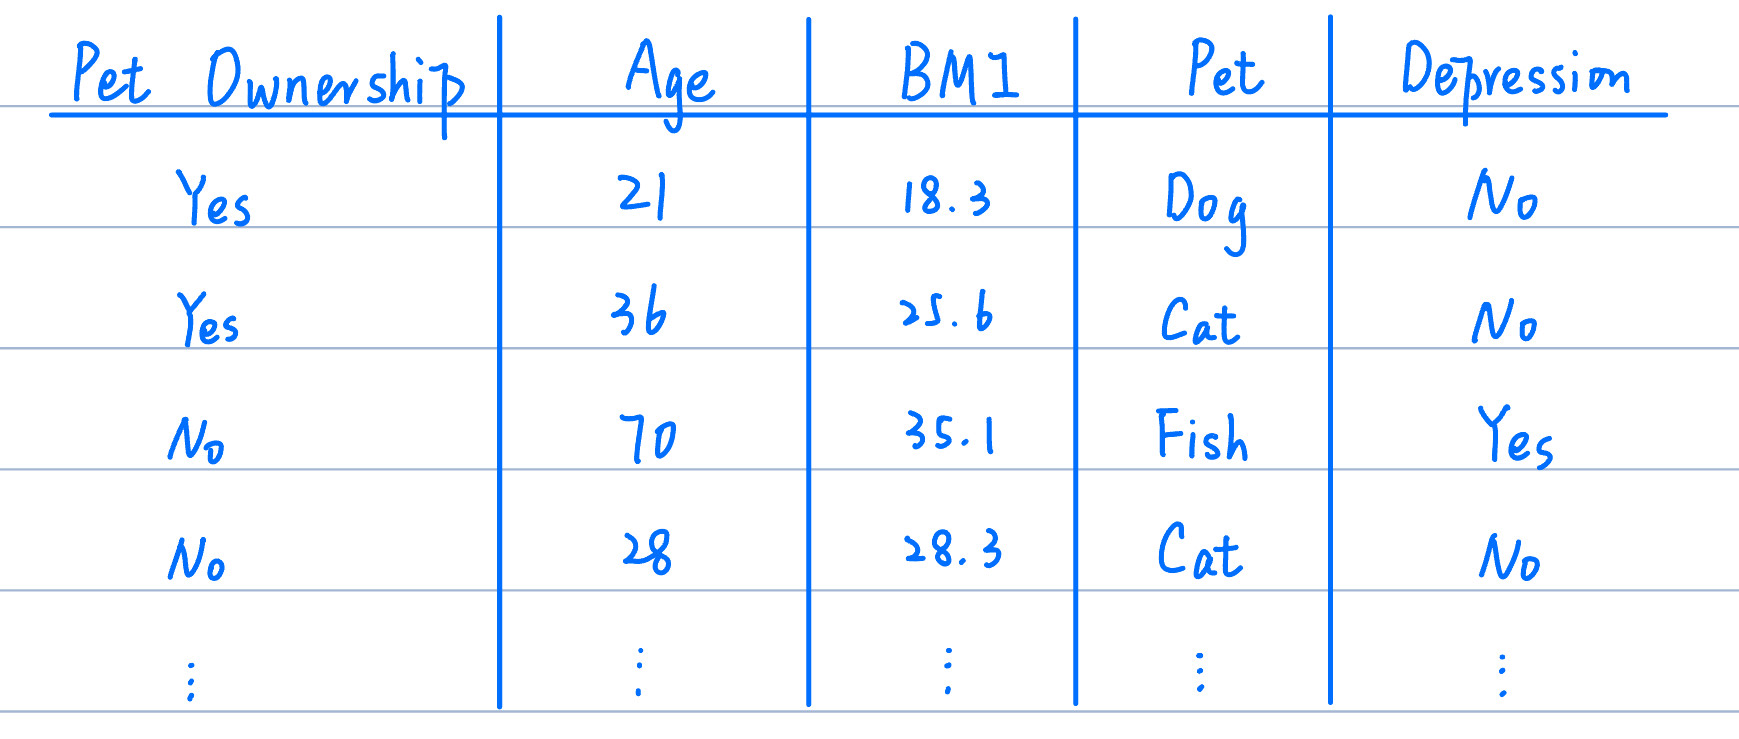 Pet Ownership Age BMI Pet Depression
Yes 21 18.3 Dog No
Yes 36 25.6 Cat No
No 70 35.1 Fish Yes
No 28 28.3 Cat No
⋮ ⋮ ⋮ ⋮ ⋮